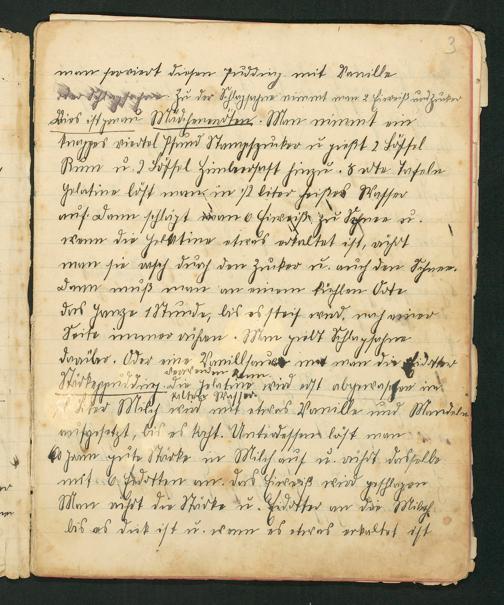 3
man serviert diesen Pudding mit Vanille
oder Schlagsahne. Zu der Schlagsahne nimmt man 2 Eiweiß und Zucker
Dies ist genau Mädchenröten. Man nimmt ein
knappes viertel Pfund Stampfzucker u. gießt 2 Löffel
Rum u. 2 Löffel Himbeersaft hinzu. 8 rote Tafeln
Gelatine löst man in 1/8 liter heißes Wasser
auf. Dann schlägt man 6 Eiweiß zu Schnee u.
wenn die Gelatine etwas erkaltet ist, rührt
man sie rasch durch den Zucker u. auch den Schnee.
Dann muß man an einem kühlen Orte
das ganze 1 Stunde, bis es steif wird, nach einer
Seite immer rühren. Man giebt Schlagsahne
darüber. Oder eine Vanillsauce wozu man die Eidotter
verwenden kann.
Stärkepudding. Die Gelatine wird erst abgewaschen in
kaltes Wasser
Liter Milch wird mit etwas Vanille und Mandeln
aufgesetzt, bis es kocht. Unterdessen löst man
60 gram gute Stärke in Milch auf u. rührt dasselbe
mit 6 Eidotten an. das Eiweiß wird geschlagen
Man rührt die Stärke u. Eidotter an die Milch
bis es dick ist u. wenn es etwas erkaltet ist